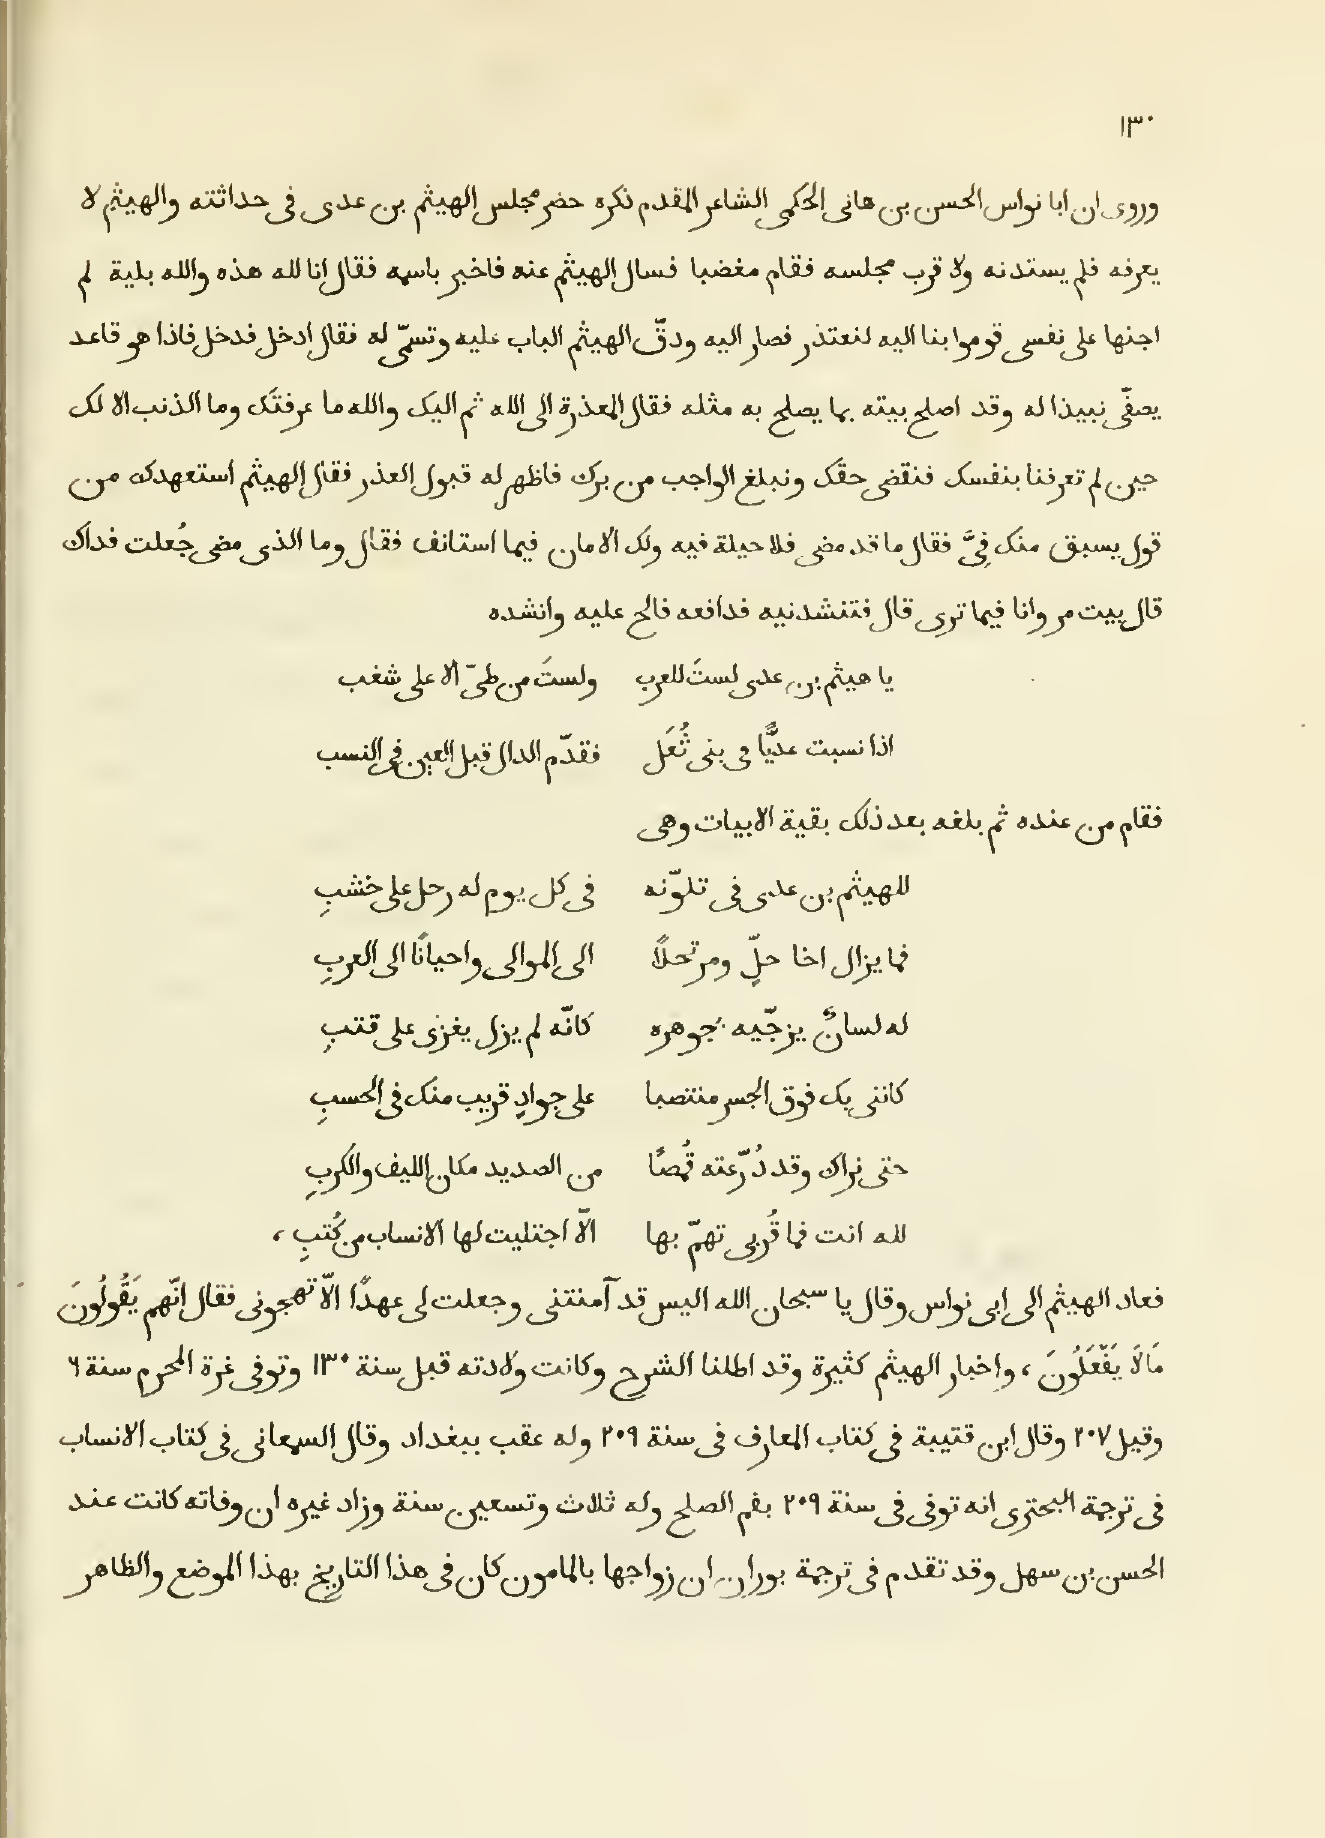 ١٣٠
وروى ان ابا نواس الحسن بن هانى الحكمى الشاعر المقدم ذكره حضر مجلس الهيثم بن عدى فى حداثته والهيثم لا
يعرفه فلم يستدنه ولا قرب مجلسه فقام مغضبا فسال الهيثم عنه فاخبر باسمه فقال انا لله هذه والله بلية لم
اجنها على نفسى قوموا بنا اليه لنعتذر فصار اليه ودقّ الهيثم الباب عليه وتسمّى له فقال ادخل فدخل فاذا هو قاعد
يصفّى نبيذا له وقد اصلح بيته بما يصلح به مثله فقال المعذرة الى الله ثم اليك والله ما عرفتك وما الذنب الا لك
حين لم تعرفنا بنفسك فنقضى حقك ونبلغ الواجب من برك فاظهر له قبول العذر فقال الهيثم استعهدك من
قول يسبق منك فِىَّ فقال ما قد مضى فلا حيلة فيه ولك الامان فيما استانف فقال وما الذى مضى جُعلت فداك
قال بيت مر وانا فيما ترى قال فتنشدنيه فدافعه فالح عليه وانشده
يا هيثم بن عدى لستَ للعرب ولستَ من طىّ الا على شغب
اذا نسبت عديًّا فى بنى ثُعَل فقدّم الدال قبل العين فى النسب
فقام من عنده ثم بلغه بعد ذلك بقية الابيات وهى
للهيثم بن عدى فى تلوّنه فى كل يوم له رحل على خشبِ
فما يزال اخا حلّ ومرتحلًا الى الموالى واحيانًا الى العربِ
له لسانٌ يزجّيه بجوهره كانّه لم يزل يغزى على قتبِ
كاننى بك فوق الجسر منتصبا على جوادٍ قريب منك فى الحسبِ
حتى نراك وقد دُرّعته قُمصًا من الصديد مكان الليف والكربِ
لله انت فما قُربى تهمّ بها الّا اجتليت لها الانساب من كُتبِ ،
فعاد الهيثم الى ابى نواس وقال يا سبحان الله اليس قد آمنتنى وجعلت لى عهدًا الّا تهجونى فقال انّهم يَقُولُونَ
مَالَا يَفْعَلُونَ ، واخبار الهيثم كثيرة وقد اطلنا الشرح وكانت ولادته قبل سنة ١٣٠ وتوفى غرة المحرم سنة ٦
وقيل ٢٠٧ وقال ابن قتيبة فى كتاب المعارف فى سنة ٢٠٩ وله عقب ببغداد وقال السمعانى فى كتاب الانساب
فى ترجمة البحترى انه توفى فى سنة ٢٠٩ بفم الصلح وله ثلاث وتسعين سنة وزاد غيره ان وفاته كانت عند
الحسن بن سهل وقد تقدم فى ترجمة بوران ان زواجها بالمامون كان فى هذا التاريخ بهذا الموضع والظاهر